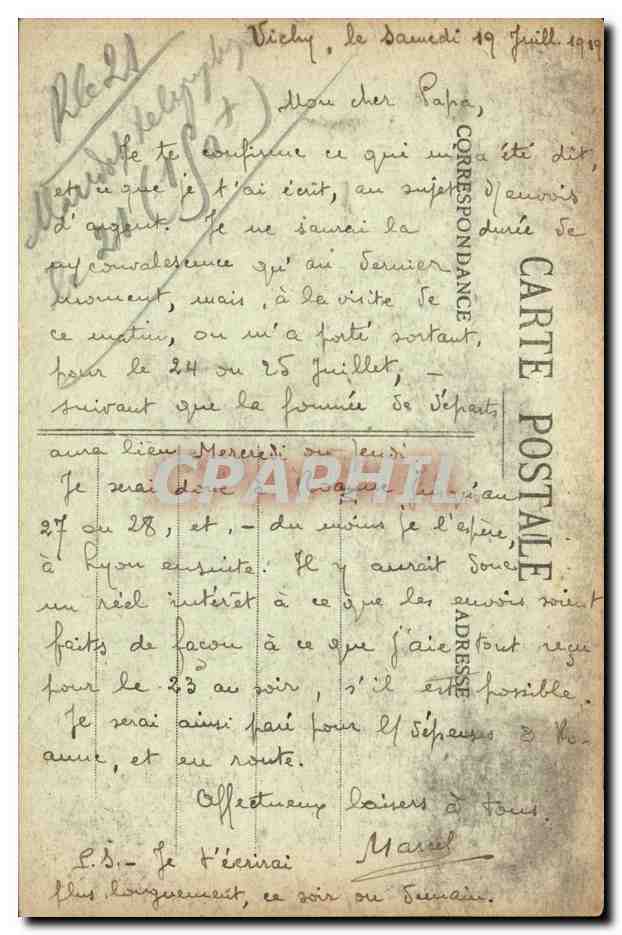 Vichy, le Samedi 19 Juill. 1919
Rle 21
Mandat télégraphique
le 21 (150+)
Mon cher Papa,
Je te confirme ce qui m'a été dit,
et ce que je t'ai écrit, au sujet d'envois
d'argent. Je ne saurai la durée de
ma convalescence qu'au dernier
moment, mais, à la visite de
ce matin, on m'a porté sortant,
pour le 24 ou 25 Juillet, –
suivant que la fournée de départs
aura lieu Mercredi ou Jeudi
Je serai donc à Roanne jusqu'au
27 ou 28, et, – du moins je l'espère,
à Lyon ensuite. Il y aurait donc
un réel intérêt à ce que les envois soient
faits de façon à ce que j'aie tout reçu
pour le 23 au soir, s'il est possible.
Je serai ainsi paré pour les dépenses à Ro-
anne, et en route.
Affectueux baisers à tous.
Marcel
P.S. – Je t'écrirai
plus longuement, ce soir ou demain.
CARTE POSTALE
CORRESPONDANCE
ADRESSE
CPAPHIL